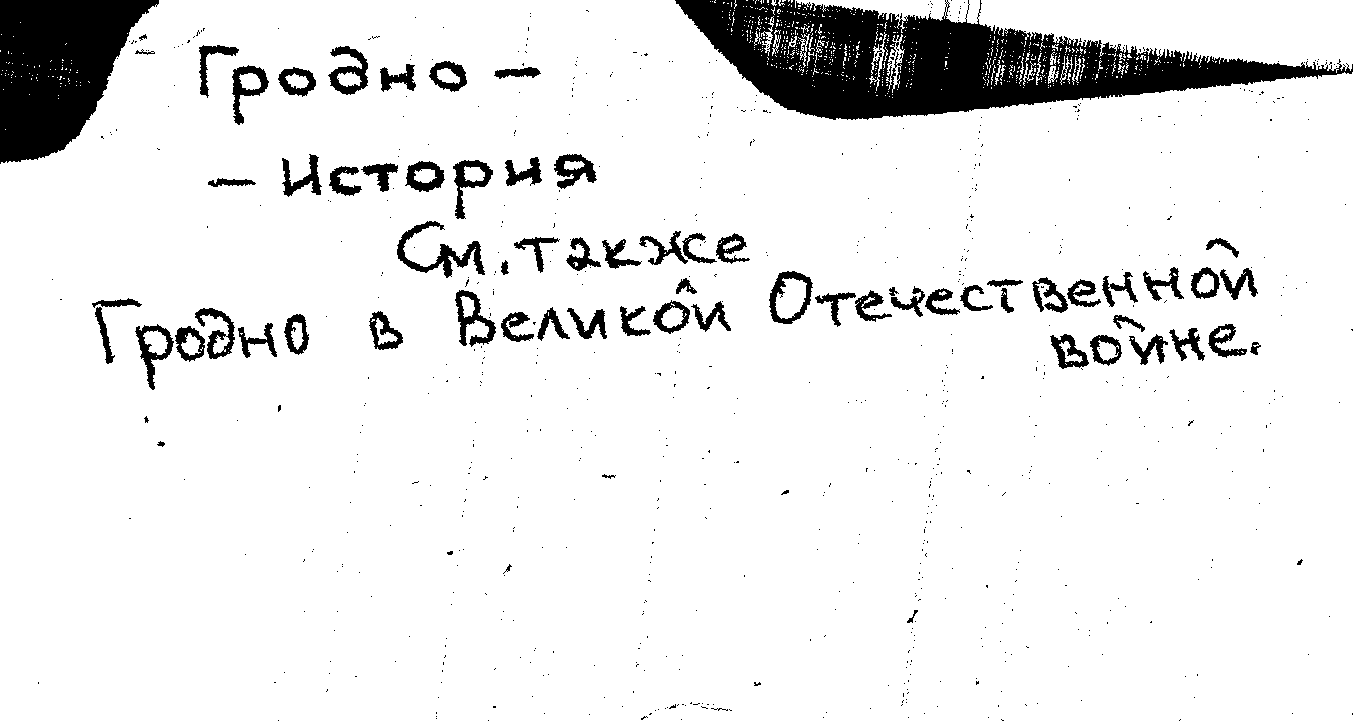 Гродно –
– История
См. также
Гродно в Великой Отечественной
войне.